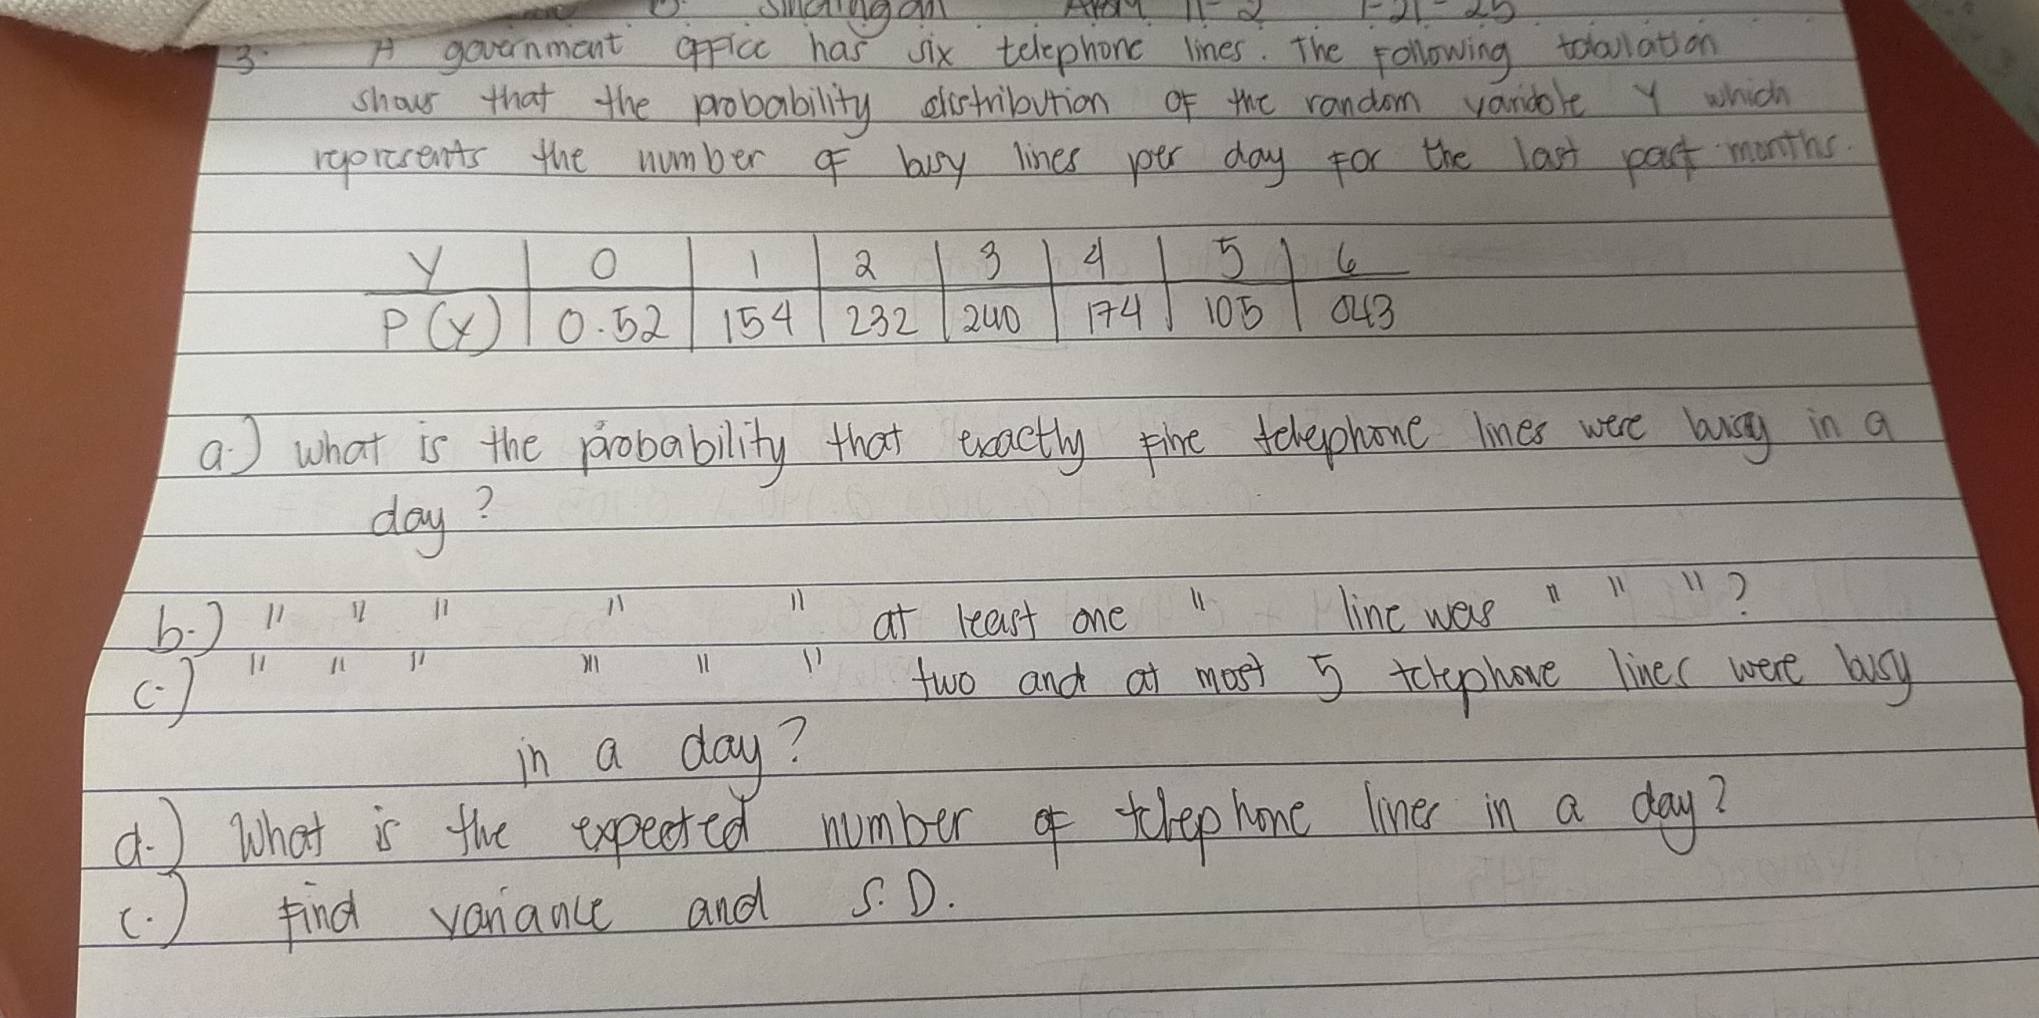 3. A government office has six telephone lines. The following tabulation
shows that the probability distribution of the random variable Y which
represents the number of busy lines per day for the last past months.
Y 0 1 2 3 4 5 6
P(Y) 0.52 154 232 240 174 105 043
a.) what is the probability that exactly five telephone lines were busy in a
day?
b.) " " " " " at least one " line was " " "?
c.) " " " " " " two and at most 5 telephone lines were busy
in a day?
d.) What is the expected number of telephone lines in a day?
c.) Find variance and S.D.